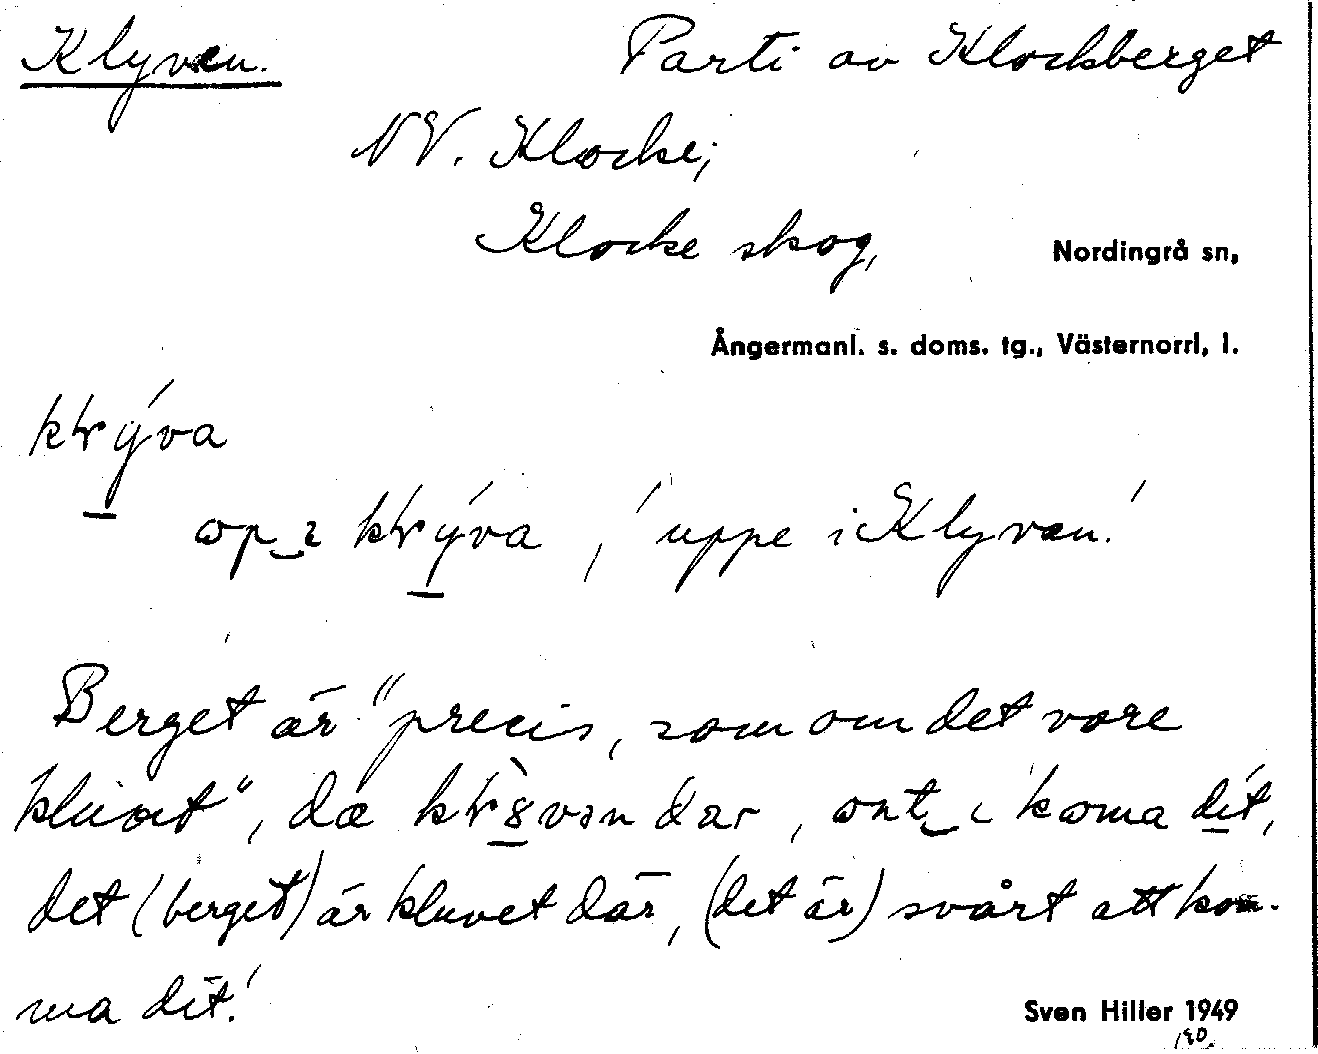 Klyven. Parti av Klockberget
NV. Klocke;
Klocke skog, Nordingrå sn,
Ångermanl. s. doms. tg., Västernorrl, l.
kɽýva
op i kɽýva, 'uppe i Klyven.'
Berget är "precis, som om det vore
kluvet", dæ kɽ̀8vən dar, ont i koma dit,
det (berget) är kluvet där, (det är) svårt att kom-
ma dit.'
Sven Hiller 1949